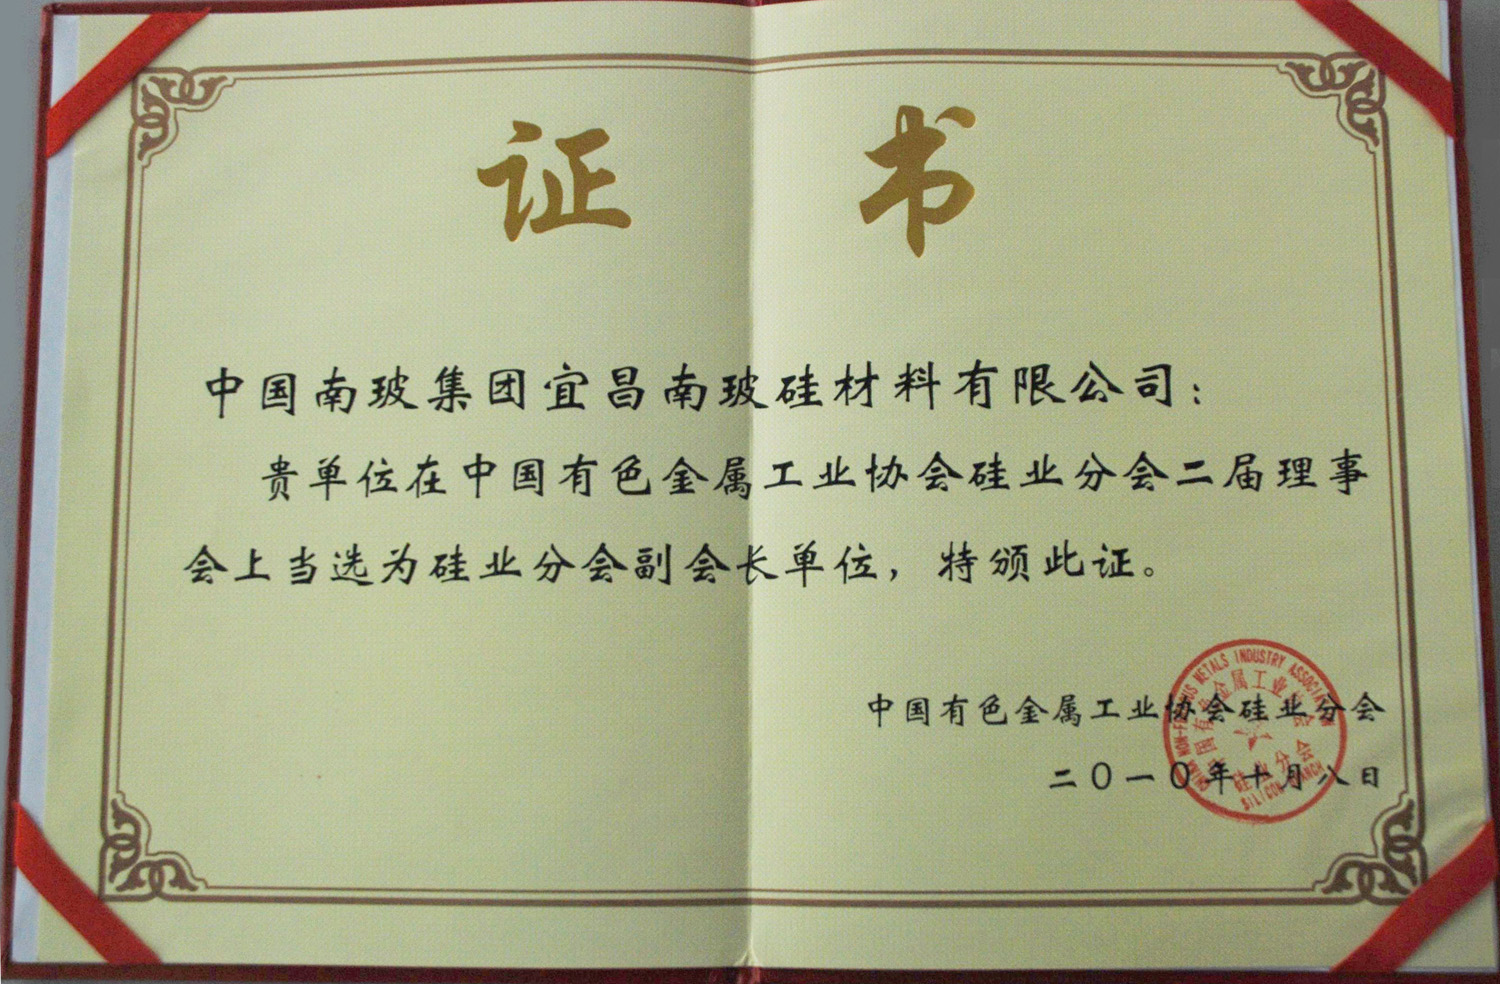 证书
中国南玻集团宜昌南玻硅材料有限公司：
贵单位在中国有色金属工业协会硅业分会二届理事
会上当选为硅业分会副会长单位，特颁此证。
中国有色金属工业协会硅业分会
二〇一〇年十月八日
CHINA NON-FERROUS METALS INDUSTRY ASSOCIATION
中国有色金属工业协会
硅业分会
SILICON BRANCH